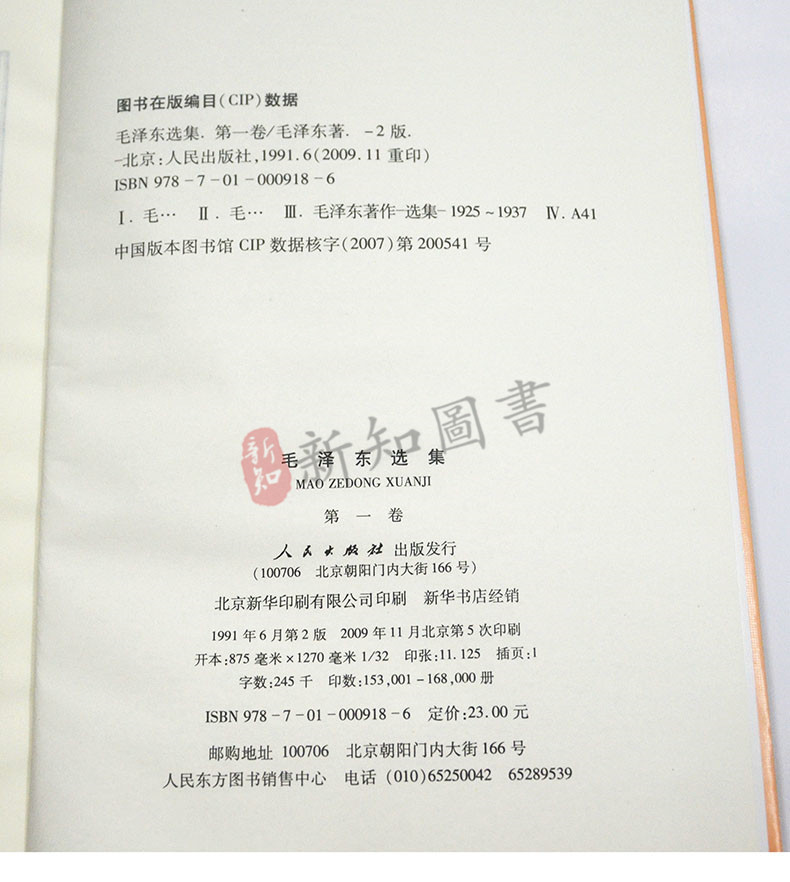 图书在版编目(CIP)数据
毛泽东选集. 第一卷/毛泽东著. -2版.
-北京:人民出版社,1991.6(2009.11重印)
ISBN 978-7-01-000918-6
Ⅰ. 毛… Ⅱ. 毛… Ⅲ. 毛泽东著作-选集-1925~1937 Ⅳ. A41
中国版本图书馆CIP数据核字(2007)第200541号
新知
新知圖書
毛泽东选集
MAO ZEDONG XUANJI
第一卷
人民出版社 出版发行
(100706 北京朝阳门内大街166号)
北京新华印刷有限公司印刷 新华书店经销
1991年6月第2版 2009年11月北京第5次印刷
开本:875毫米×1270毫米1/32 印张:11.125 插页:1
字数:245千 印数:153,001-168,000册
ISBN 978-7-01-000918-6 定价:23.00元
邮购地址 100706 北京朝阳门内大街166号
人民东方图书销售中心 电话 (010)65250042 65289539